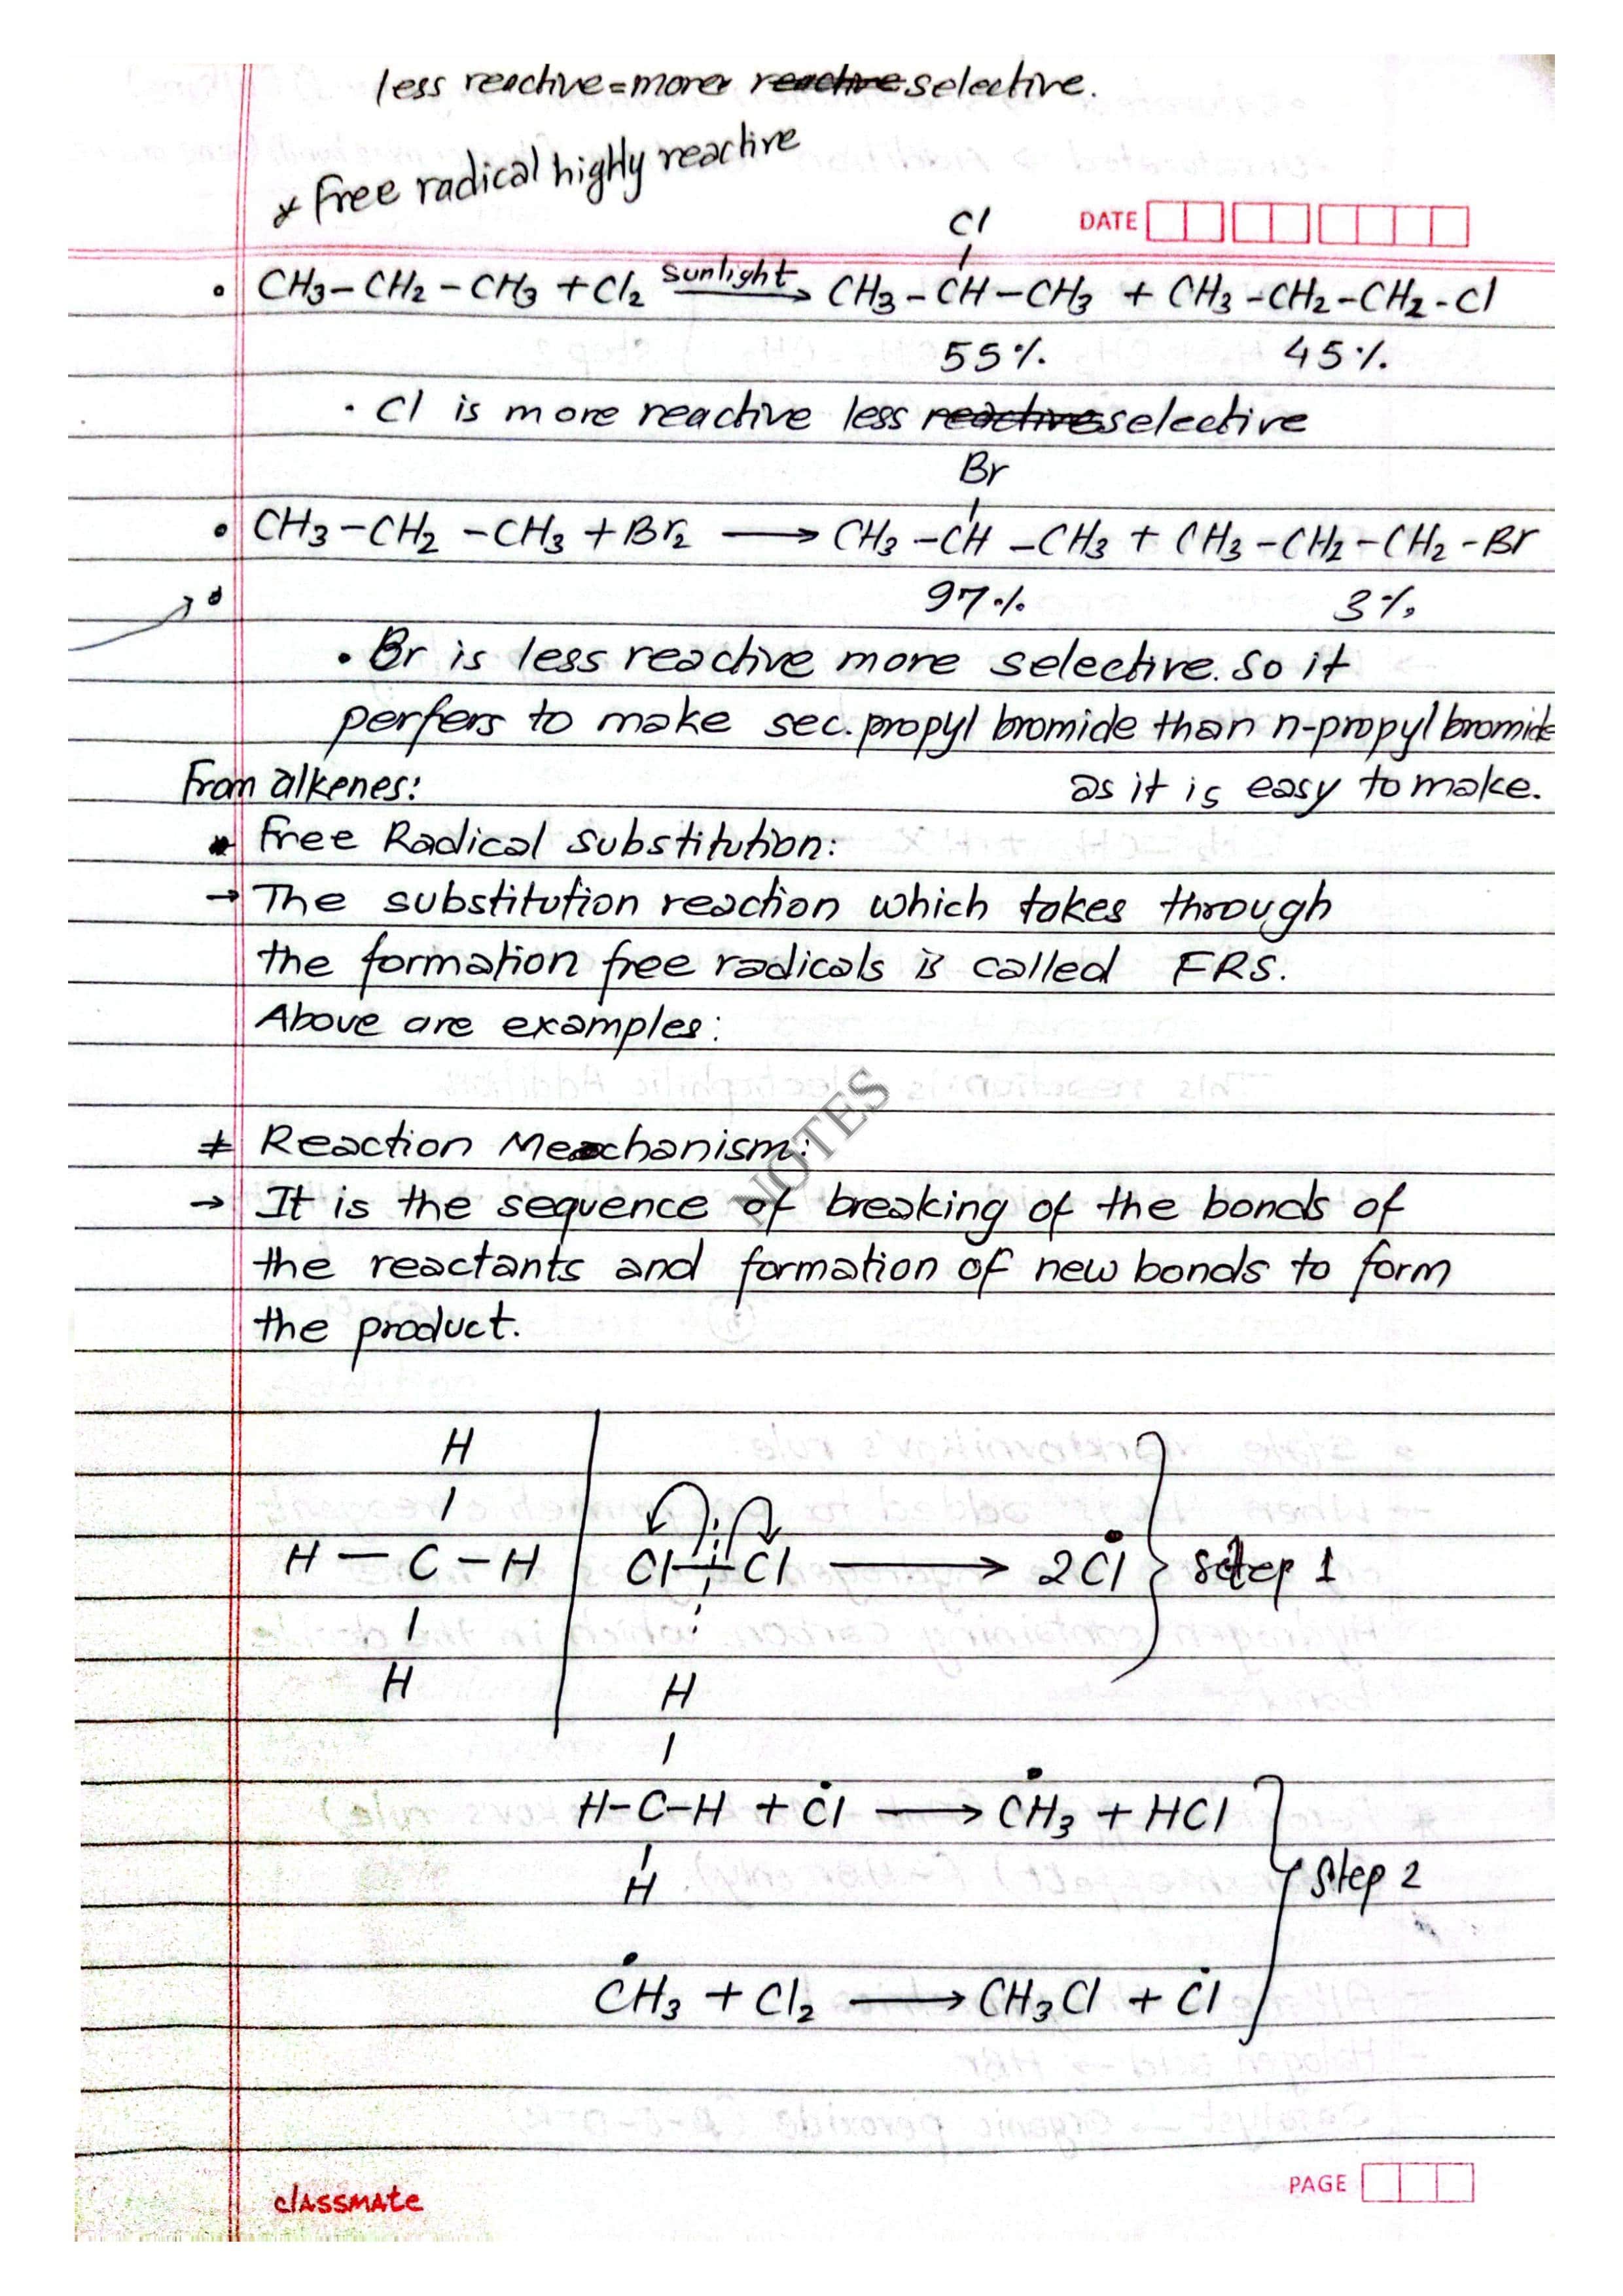 less reactive = more selective.
* Free radical highly reactive
DATE
Cl
CH₃-CH₂-CH₃ + Cl₂ sunlight→ CH₃-CH-CH₃ + CH₃-CH₂-CH₂-Cl
55% 45%
• Cl is more reactive less selective
Br
CH₃-CH₂-CH₃ + Br₂ → CH₃-CH-CH₃ + CH₃-CH₂-CH₂-Br
97% 3%
• Br is less reactive more selective. So it
perfers to make sec. propyl bromide than n-propyl bromide
From alkenes: as it is easy to make.
* Free Radical Substitution:
→ The substitution reaction which takes through
the formation free radicals is called FRS.
Above are examples:
NOTES
* Reaction Mechanism:
→ It is the sequence of breaking of the bonds of
the reactants and formation of new bonds to form
the product.
H
H-C-H Cl-Cl → 2Cl• Step 1
H
H
H-C-H + Cl• → •CH₃ + HCl
H Step 2
•CH₃ + Cl₂ → CH₃Cl + Cl•
classmate
PAGE